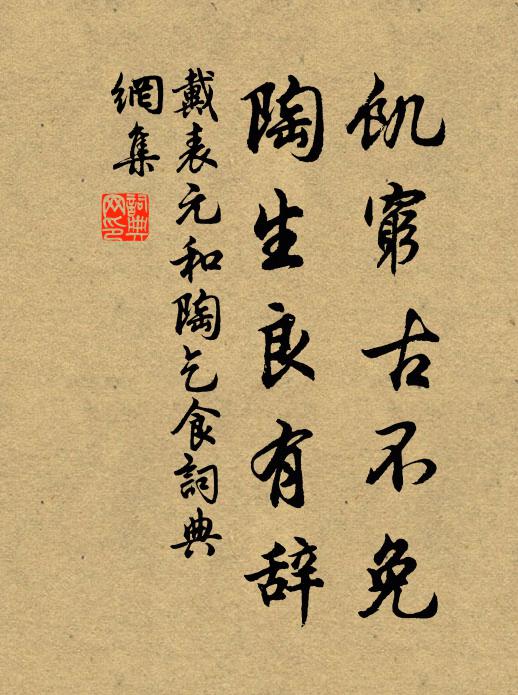 飢窮古不免
陶生良有辞
戴表元和陶乞食詞典
網集
詞典
网印